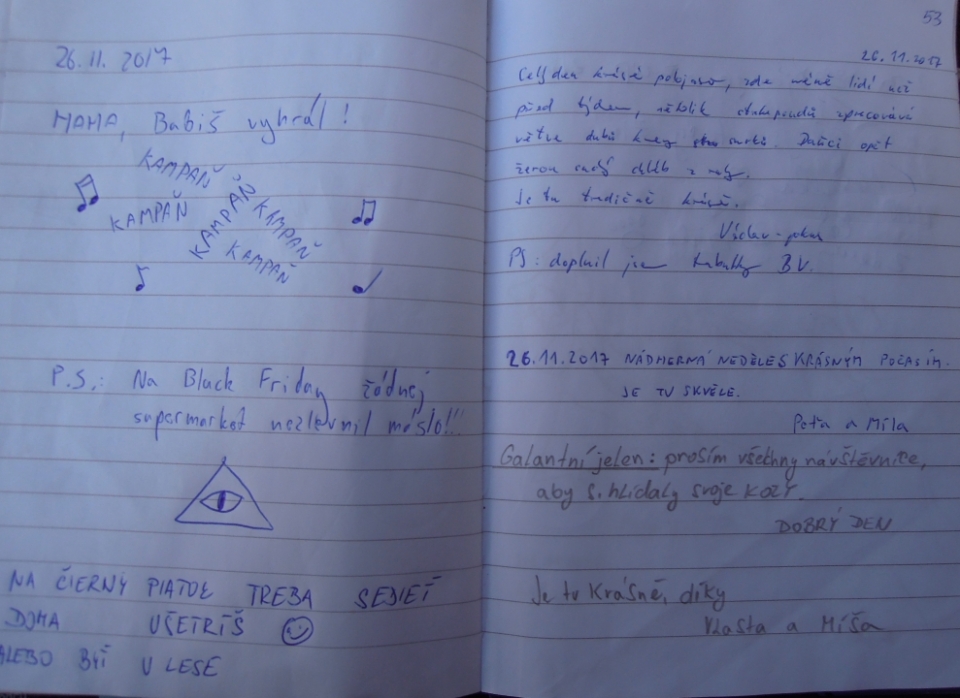 26. 11. 2017
MAMA, Babiš vyhrál!
KAMPAŇ
KAMPAŇ
KAMPAŇ
KAMPAŇ
KAMPAŇ
P.S.: Na Black Friday žádnej
supermarket nezlevnil máslo!!!
NA ČIERNY PIATOK TREBA SEDIEŤ
DOMA UŠETRÍŠ
ALEBO BYŤ V LESE
53
26. 11. 2017
Celý den krásně, zde méně lidí než
před týdnem, několik zpracovává
větve dubů. opět
žerou suchý chléb z
Je tu tradičně krásně.
Václav
PS: doplnil jsem BV.
26.11.2017 NÁDHERNÁ NEDĚLE S KRÁSNÝM POČASÍM.
JE TU SKVĚLE.
Peťa a Míla
Galantní jelen: prosím všechny návštěvnice,
aby si hlídaly svoje KOZY.
DOBRÝ DEN
Je tu Krásně, díky
Vlasta a Míša